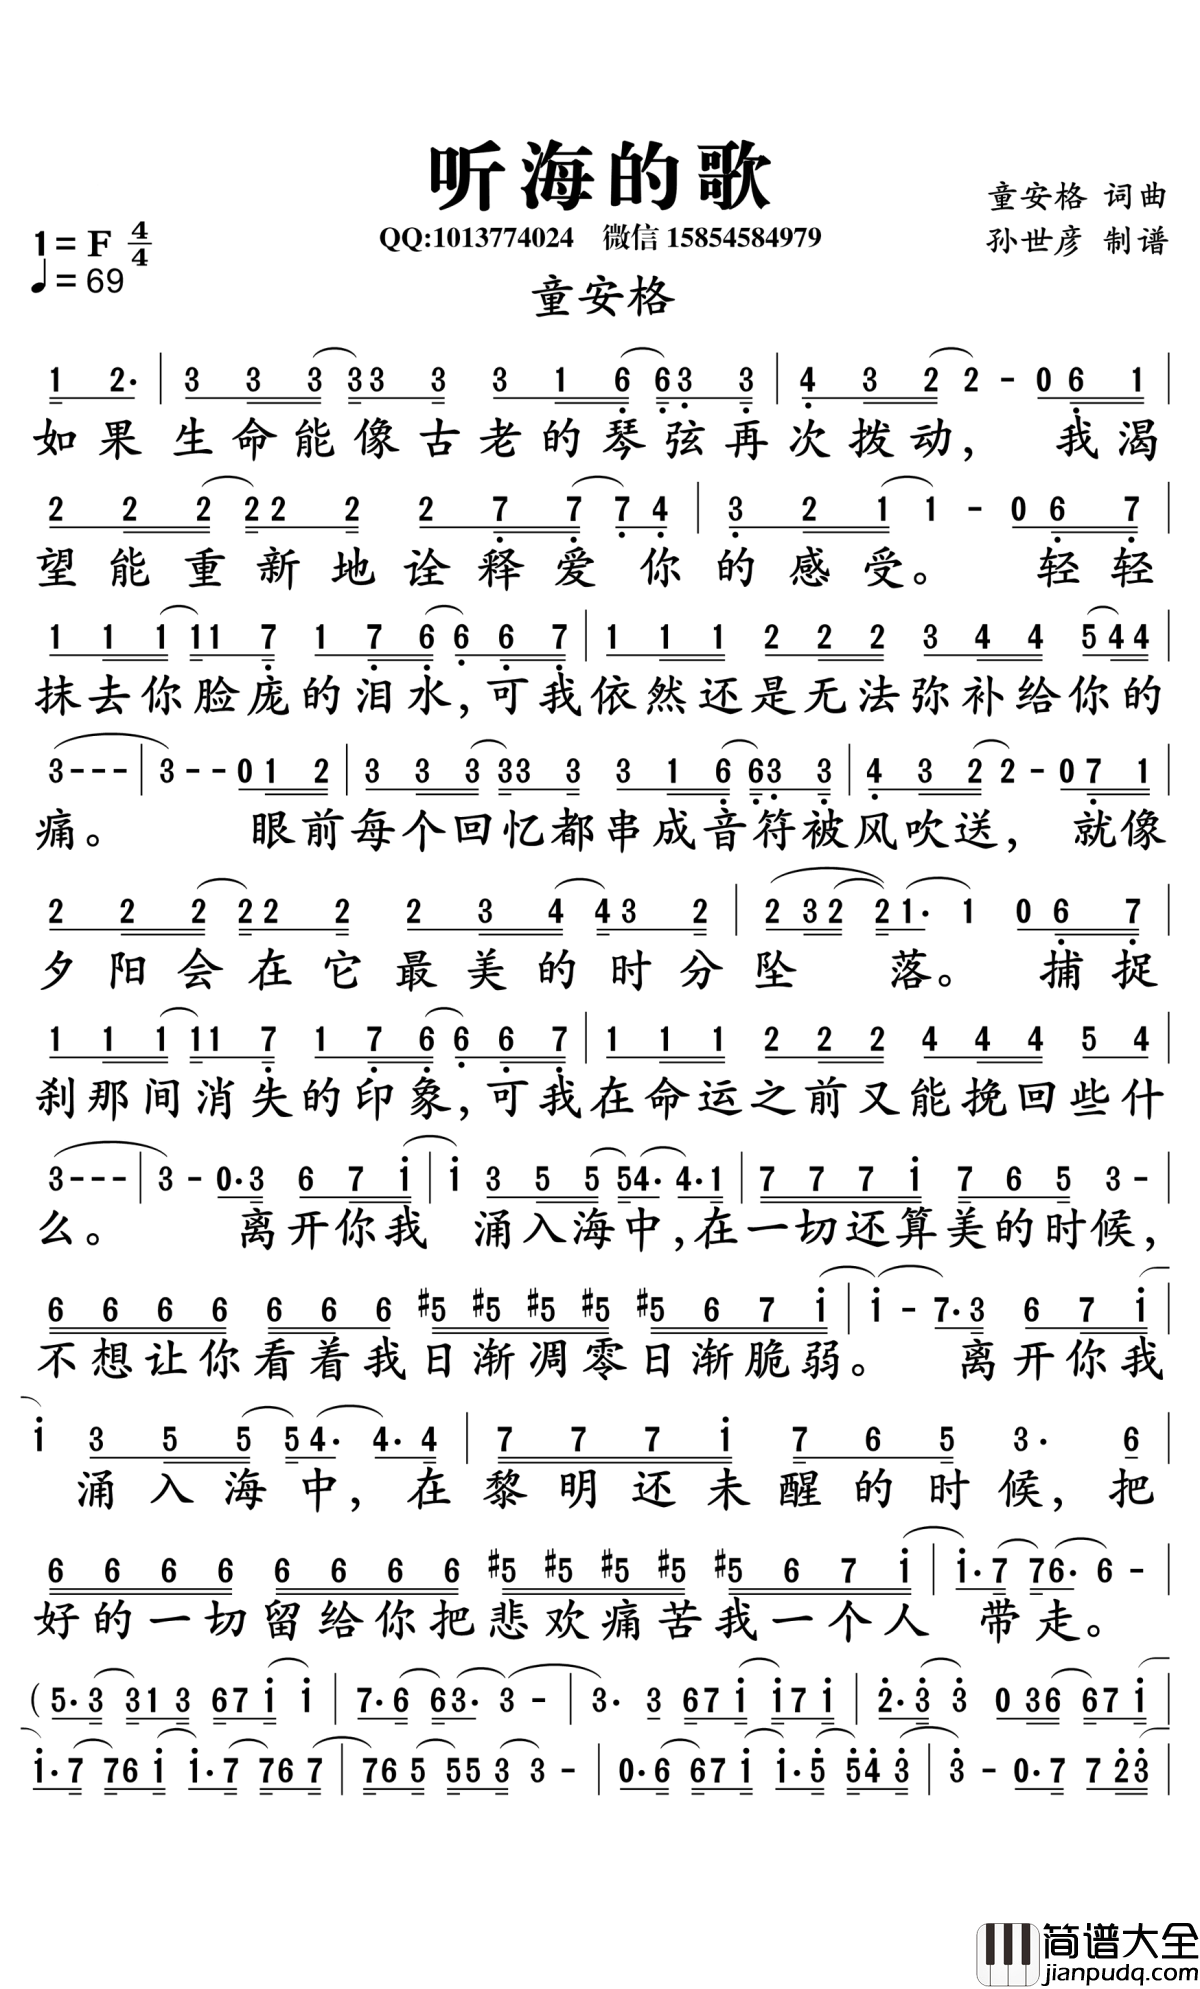 听海的歌
童安格 词曲
1=F 4/4
QQ:1013774024 微信 15854584979
孙世彦 制谱
♩=69
童安格
1 2. | 3 3 3 3 3 3 3 1 6 6 3 3 | 4 3 2 2 - 0 6 1 |
如果生命能像古老的琴弦再次拨动， 我渴
2 2 2 2 2 2 2 7 7 7 4 | 3 2 1 1 - 0 6 7 |
望能重新地诠释爱你的感受。 轻轻
1 1 1 1 1 7 1 7 6 6 6 7 | 1 1 1 2 2 2 3 4 4 5 4 4 |
抹去你脸庞的泪水，可我依然还是无法弥补给你的
3 - - - | 3 - - 0 1 2 | 3 3 3 3 3 3 3 1 6 6 3 3 | 4 3 2 2 - 0 7 1 |
痛。 眼前每个回忆都串成音符被风吹送， 就像
2 2 2 2 2 2 2 3 4 4 3 2 | 2 3 2 2 1. 1 0 6 7 |
夕阳会在它最美的时分坠 落。 捕捉
1 1 1 1 1 7 1 7 6 6 6 7 | 1 1 1 2 2 2 4 4 4 5 4 |
刹那间消失的印象，可我在命运之前又能挽回些什
3 - - - | 3 - 0. 3 6 7 i | i 3 5 5 5 4. 4. 1 | 7 7 7 i 7 6 5 3 - |
么。 离开你我 涌入海中，在一切还算美的时候，
6 6 6 6 6 6 6 #5 #5 #5 #5 #5 6 7 i | i - 7. 3 6 7 i |
不想让你看着我日渐凋零日渐脆弱。 离开你我
i 3 5 5 5 4. 4. 4 | 7 7 7 i 7 6 5 3. 6 |
涌入海中， 在黎明还未醒的时候， 把
6 6 6 6 6 6 6 6 #5 #5 #5 #5 #5 6 7 i | i. 7 7 6. 6 - |
好的一切留给你把悲欢痛苦我一个人 带走。
( 5. 3 3 1 3 6 7 i i | 7. 6 6 3. 3 - | 3. 3 6 7 i i 7 i | 2. 3 3 0 3 6 6 7 i |
i. 7 7 6 i i. 7 7 6 7 | 7 6 5 5 5 3 3 - | 0. 6 6 7 i i. 5 5 4 3 | 3 - 0. 7 7 2 3 |
简谱大全
jianpudq.com